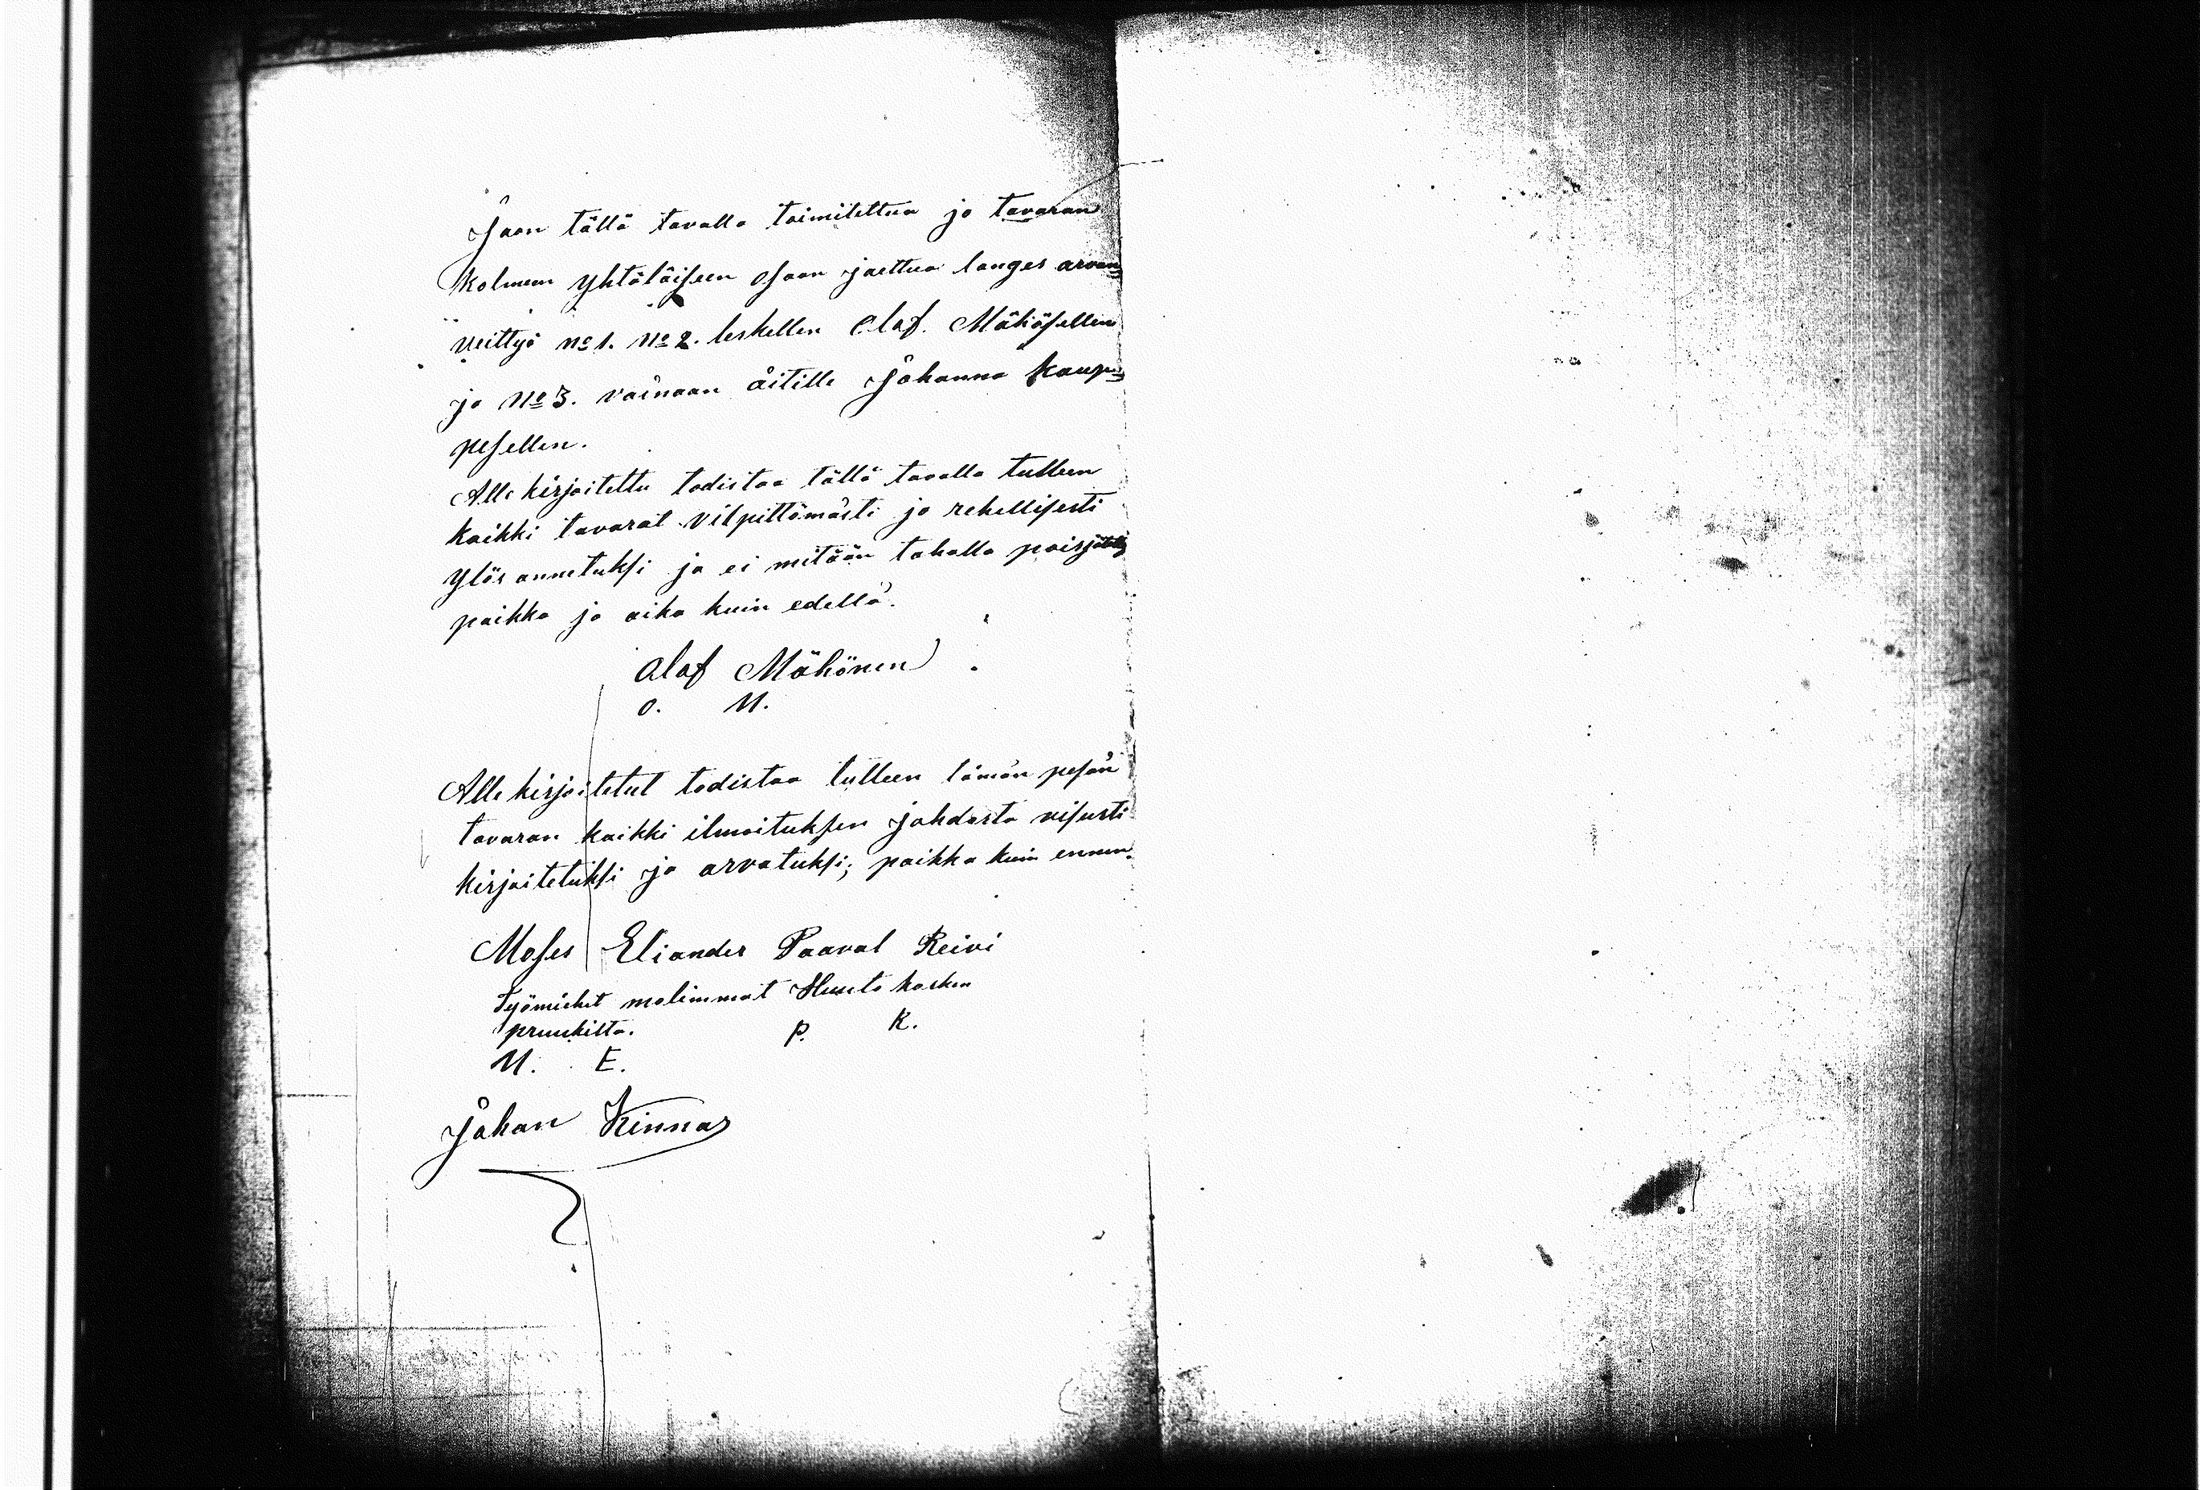 Jaon tällä tavalla toimitettua ja tavaran
kolmeen yhtäläiseen osaan jaettua langes arvan=
veittyä No 1. No 2. leskellen Olof. Mähösellen
ja No 3. vainaan äitille Johanna Kaup=
pesellen.
Alle kirjoitettu todistaa tällä tavalla tulleen
kaikki tavarat vilpittömästi ja rehellisesti
ylös annetuksi ja ei mitään tahalla poisjätetty
paikka ja aika kuin edellä.
Olof Mähönen
O. M.
Alle kirjoitetut todistaa tulleen tämän pesän
tavaran kaikki ilmoituksen johdosta visusti
kirjoitetuksi ja arvatuksi; paikka kuin ennen.
Moses Eliander Paaval Reivi
Työmiehet molimmat Huuto kosken
pruukista.
P. R.
M. E.
Johan Kinnar